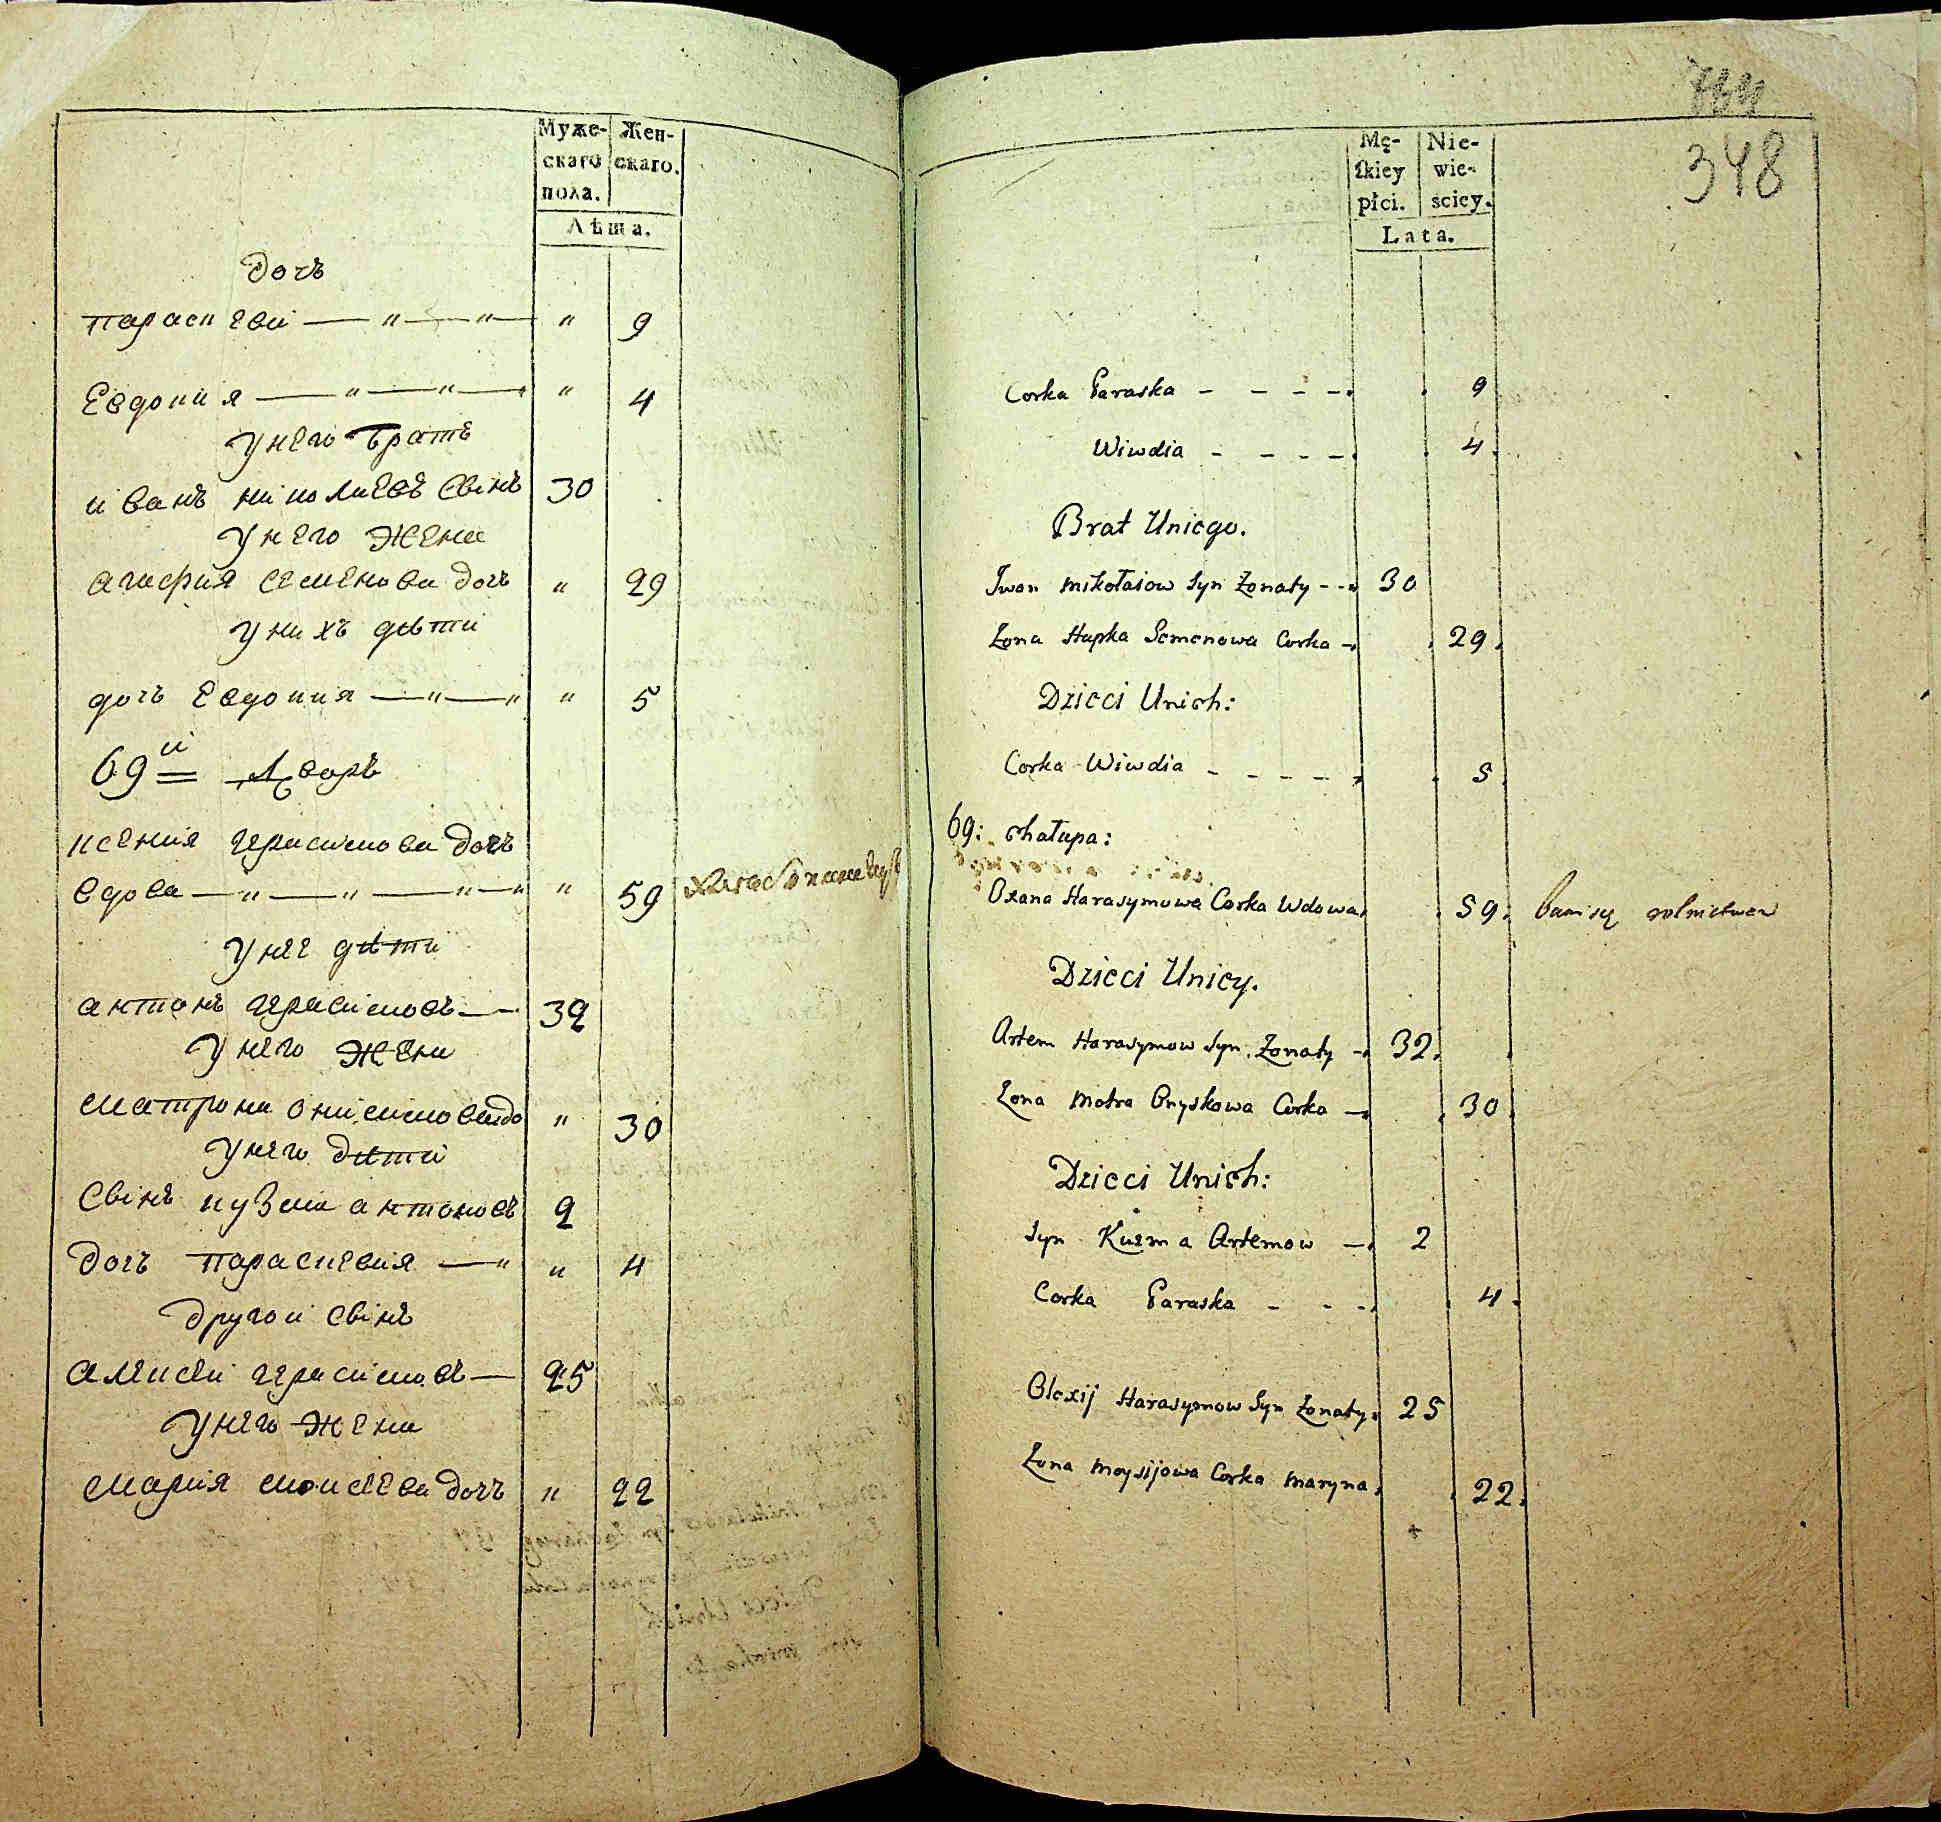 Муже- Жен-
скаго скаго.
пола.
Лѣта.
дочъ
параскеви — " — " — " 9
Евдокия — " — " — " 4
У него братъ
иванъ николаевъ свінъ 30
У него жена
агафия семенова дочъ " 29
У нихъ дѣти
дочъ Евдокия — " — " " 5
69й Дворъ
ксения герасимова дочъ
вдова — " — " — " — " " 59
У нее дѣти
антонъ герасимовъ — 32
У него жена
матрона онисимова до " 30
У него дѣти
Свінъ кузма антоновъ 2
Дочъ параскевия — " " 4
Другои свінъ
алексеи герасимовъ — 25
У него жена
мария моисеева дочъ " 22
348
Mę- Nie-
skiey wie-
płci. sciey.
Lata.
Corka Paraska - - - - 9
Wiwdia - - - - 4
Brat Uniego.
Iwan Mikołaiow Syn Żonaty - - 30
Żona Hapka Semenowa Corka - 29
Dzieci Unich:
Corka Wiwdia - - - - 5
69: chałupa:
Oxana Harasymowa Corka Wdowa 59. bawi się rolnictwem
Dzieci Unicy.
Artem Harasymow Syn Żonaty - 32.
Żona Motra Onyskowa Corka - 30
Dzieci Unich:
Syn Kuzma Artemow - 2
Corka Paraska - - - 4
Olexij Harasymow Syn Żonaty 25
Żona Moysijowa Corka Maryna 22.